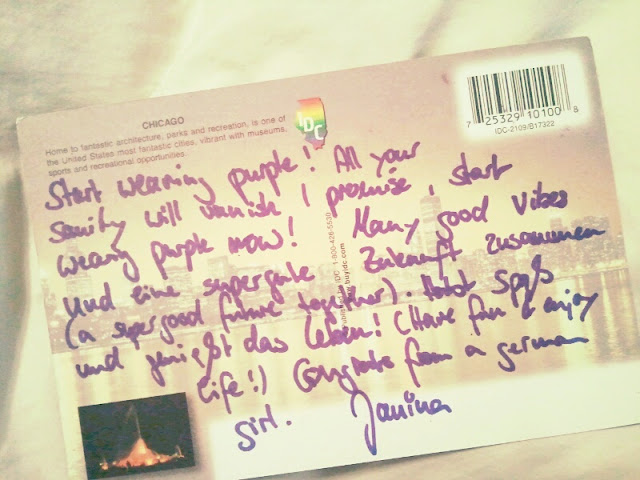 CHICAGO
Home to fantastic architecture, parks and recreation, is one of
the United States most fantastic cities, vibrant with museums,
sports and recreational opportunities.
IDC
7 25329 10100 8
IDC-2109/B17322
Start wearing purple! All your
sanity will vanish I promise, start
wearing purple now! Many good vibes
und eine supergute Zukunft zusammen
(a supergood future together). Habt Spaß
und genießt das Leben! (Have fun & enjoy
life!) Congrats from a german
girl. Janina
IDC 1-800-428-5530
buyidc.com